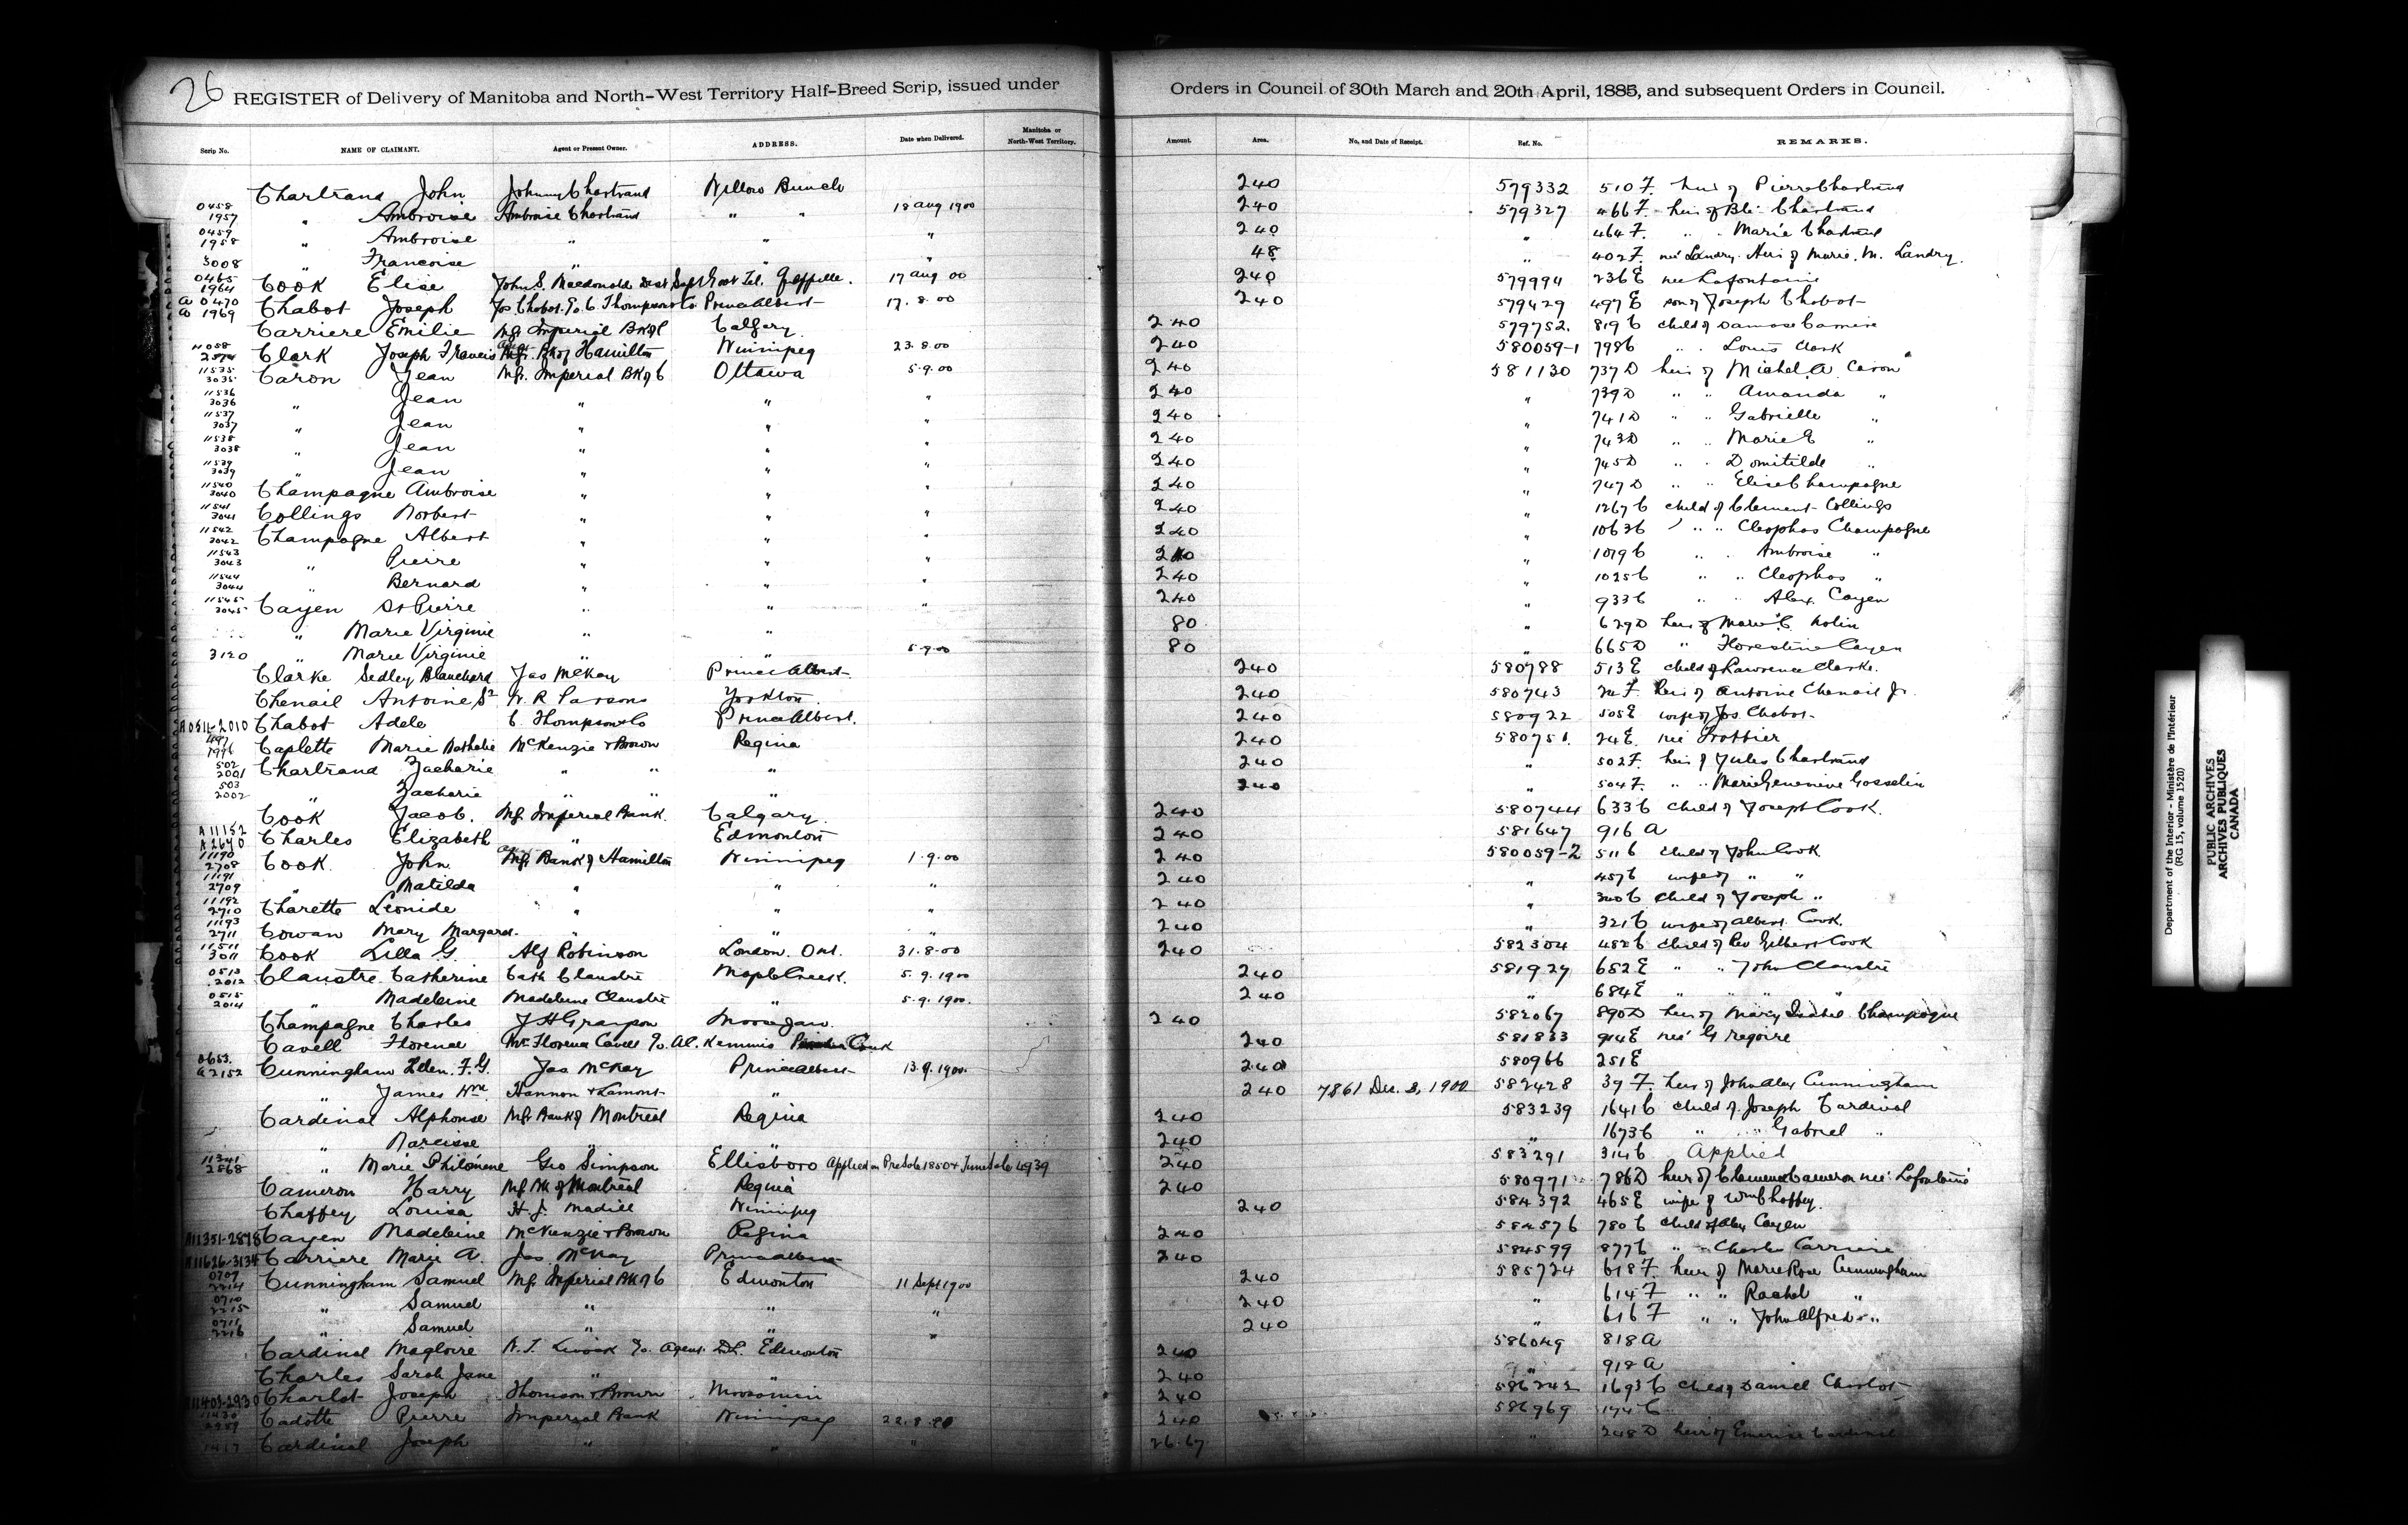 26 REGISTER of Delivery of Manitoba and North-West Territory Half-Breed Scrip, issued under Orders in Council of 30th March and 20th April, 1885, and subsequent Orders in Council.
Scrip No. NAME OF CLAIMANT. Agent or Present Owner. ADDRESS. Date when Delivered. Manitoba or North-West Territory. Amount. Area. No. and Date of Receipt. Ref. No. REMARKS.
Chartrand John Johnny Chartrand Willow Bunch 240 579332 510 F. heir of Pierre Chartrand
0458 1957 " Ambroise Ambroise Chartrand " " 18 Aug 1900 240 579327 466 F. heir of Bte. Chartrand
0459 1958 " Ambroise " " " 240 " 464 F. " " Marie Chartrand
3008 " Francoise " " " 48 " 402 F. neé Landry. Heir of Marie. M. Landry.
0465 1964 Cook Elise John S. Macdonald Dist Supt Govt Tel. Qu'appelle. 17 Aug 00 240 579994 236 E nee Lafontaine
A 0470 A 1969 Chabot Joseph Jos. Chabot. c/o C. Thompson & Co Prince Albert 17. 8. 00 240 579429 497 E son of Joseph Chabot
Carriere Emilie Mgr Imperial Bk of C Calgary. 240 579752. 819 C child of Damase Carriere
11058 2574 Clark Joseph Francis Agent Mgr. Bk of Hamilton Winnipeg 23. 8. 00 240 580059-1 798 C " " Louis Clark
11535 3035 Caron Jean Mgr. Imperial Bk of C Ottawa 5. 9. 00 240 581130 737 D heir of Michel A. Caron
11536 3036 " Jean " " " 240 " 739 D " " Amanda "
11537 3037 " Jean " " " 240 " 741 D " " Gabrielle "
11538 3038 " Jean " " " 240 " 743 D " " Marie E "
11539 3039 " Jean " " " 240 " 745 D " " Domitilde "
11540 3040 Champagne Ambroise " " " 240 " 747 D " " Elise Champagne
11541 3041 Collings Norbert " " " 240 " 1267 C child of Clement Collings
11542 3042 Champagne Albert " " " 240 " 1063 C " " Cleophas Champagne
11543 3043 " Pierre " " " 240 " 1079 C " " Ambroise "
11544 3044 " Bernard " " " 240 " 1025 C " " Cleophas "
11545 3045 Cayen St Pierre " " " 240 " 933 C " " Alex. Cayen
" Marie Virginie " " 80 " 629 D heir of Marie C. Nolin
3120 " Marie Virginie " " 5.9.00 80 " 665 D " Florestine Cayen
Clarke Sedley Blanchard Jas McKay Prince Albert 240 580788 513 E child of Lawrence Clarke.
Chenail Antoine Sr W. R. Parsons Yorkton 240 580743 F. heir of Antoine Chenail Jr.
A 0511-2010 Chabot Adele C. Thompson & Co Prince Albert. 240 580922 505 E wife of Jos. Chabot.
497 1996 Caplette Marie Nathalie McKenzie & Brown Regina 240 580751. 24 E. neé Trottier
502 2001 Chartrand Zacharie " " " 240 " 502 F. heir of Jules Chartrand
503 2002 " Zacharie " " " 240 " 504 F. " " Marie Genevieve Gosselin
Cook Jacob. Mgr. Imperial Bank. Calgary. 240 580744 633 C child of Joseph Cook.
A 11152 A 2670 Charles Elizabeth " Edmonton 240 581647 916 A
11190 2708 Cook John Agent Mgr. Bank of Hamilton Winnipeg 1. 9. 00 240 580059-2 511 C child of John Cook.
11191 2709 " Matilda " " " 240 " 457 C wife of " "
11192 2710 Charette Leonide " " " 240 " 300 C child of Joseph "
11193 2711 Cowan Mary Margaret. " " " 240 " 321 C wife of Albert Cook.
11511 3011 Cook Lilla G. Alf Robinson London. Ont. 31. 8. 00 240 582304 482 C child of Rev Gilbert Cook
0513 2012 Claustre Catherine Cath Claustre Maple Creek. 5. 9. 1900 240 581927 682 E " " John Claustre
0515 2014 " Madeleine Madeleine Claustre " 5. 9. 1900. 240 " 684 E " " " "
Champagne Charles J H Grayson Moose Jaw. 240 582067 890 D heir of Mary Isabel Champagne
Cavell Florence Mrs Florence Cavell c/o Al. Kemmis Pincher Creek 240 581833 914 E neé Gregoire
0653. A 2152 Cunningham Helen. F. G. Jas McKay Prince Albert 13. 9. 1900. 240 580966 251 E
" James Wm. Hannon & Lamont " 240 7861 Dec. 3, 1900 582428 39 F. heir of John Alex Cunningham
Cardinal Alphonse Mgr Bank of Montreal Regina 240 583239 1641 C child of Joseph Cardinal
" Narcisse " " 240 " 1673 C " " Gabriel "
11341 2868 " Marie Philomene Geo Simpson Ellisboro Applied on Pre Sale 1850 & June Sale 4939 240 583291 314 C Applied
Cameron Harry Mgr Bk of Montreal Regina 240 580971 786 D heir of Clemence Cameron neé Lafontaine
Chaffey Louisa H. J. Madill Winnipeg 240 584392 465 E wife of Wm Chaffey.
A11351-2878 Cayen Madeleine McKenzie & Brown Regina 240 584576 780 C child of Alex Cayen
A11626-3134 Carriere Marie A. Jas McKay Prince Albert 240 584599 877 C " " Charles Carriere
0709 2214 Cunningham Samuel Mgr Imperial Bk of C Edmonton 11 Sept 1900 240 585724 618 F. heir of Marie Rose Cunningham
0710 2215 " Samuel " " " 240 " 614 F " " Rachel "
0711 2216 " Samuel " " " 240 " 616 F " " John Alfred "
Cardinal Magloire c/o Agent D.L. Edmonton 240 586049 818 A
Charles Sarah Jane " " 240 " 918 A
A11403-2930 Charlot Joseph Thomson & Brown Moosomin 240 586242 1693 C child of Daniel Charlot
Cadotte Pierre Imperial Bank Winnipeg 22. 8. 00 240 586969 174 C
Cardinal Joseph " " " 26.67 " 248 D heir of Emerise Cardinal
Department of the Interior - Ministère de l'Intérieur
(RG 15, volume 1520)
PUBLIC ARCHIVES
ARCHIVES PUBLIQUES
CANADA